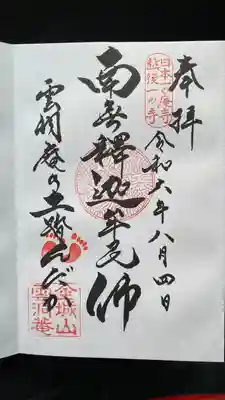 奉拝
令和六年八月四日
日本一の庵寺
越後一の寺
南無釋迦牟尼佛
雲洞庵の土踏んだか
金城山
雲洞菴